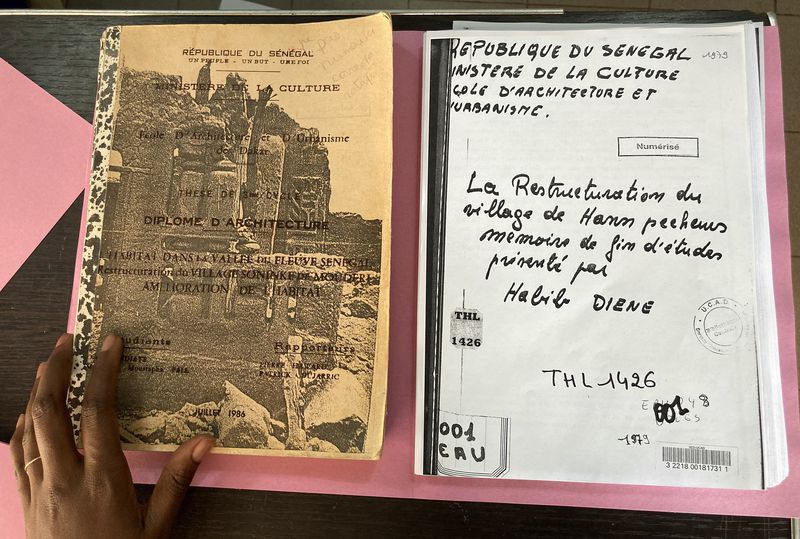 RÉPUBLIQUE DU SÉNÉGAL
UN PEUPLE - UN BUT - UNE FOI
MINISTERE DE LA CULTURE
Ecole D'Architecture et D'Urbanisme
de Dakar
THESE DE 3eme CYCLE
DIPLOME D'ARCHITECTURE
HABITAT DANS LA VALLEE DU FLEUVE SENEGAL
Restructuration du VILLAGE SONINKE DE MOUDERI
AMELIORATION DE L'HABITAT
udiants
Rapporteurs
Moustapha
PIERRE
PATRICK DUJARRIC
JUILLET 1986
REPUBLIQUE DU SENEGAL
1979
INISTERE DE LA CULTURE
COLE D'ARCHITECTURE ET
URBANISME.
Numérisé
La Restructuration du
village de Hann pecheurs
memoire de fin d'études
présenté par
Habib DIENE
THL
1426
U.C.A.D.
THL 1426
001
EAU
1979
3 2218 00181731 1